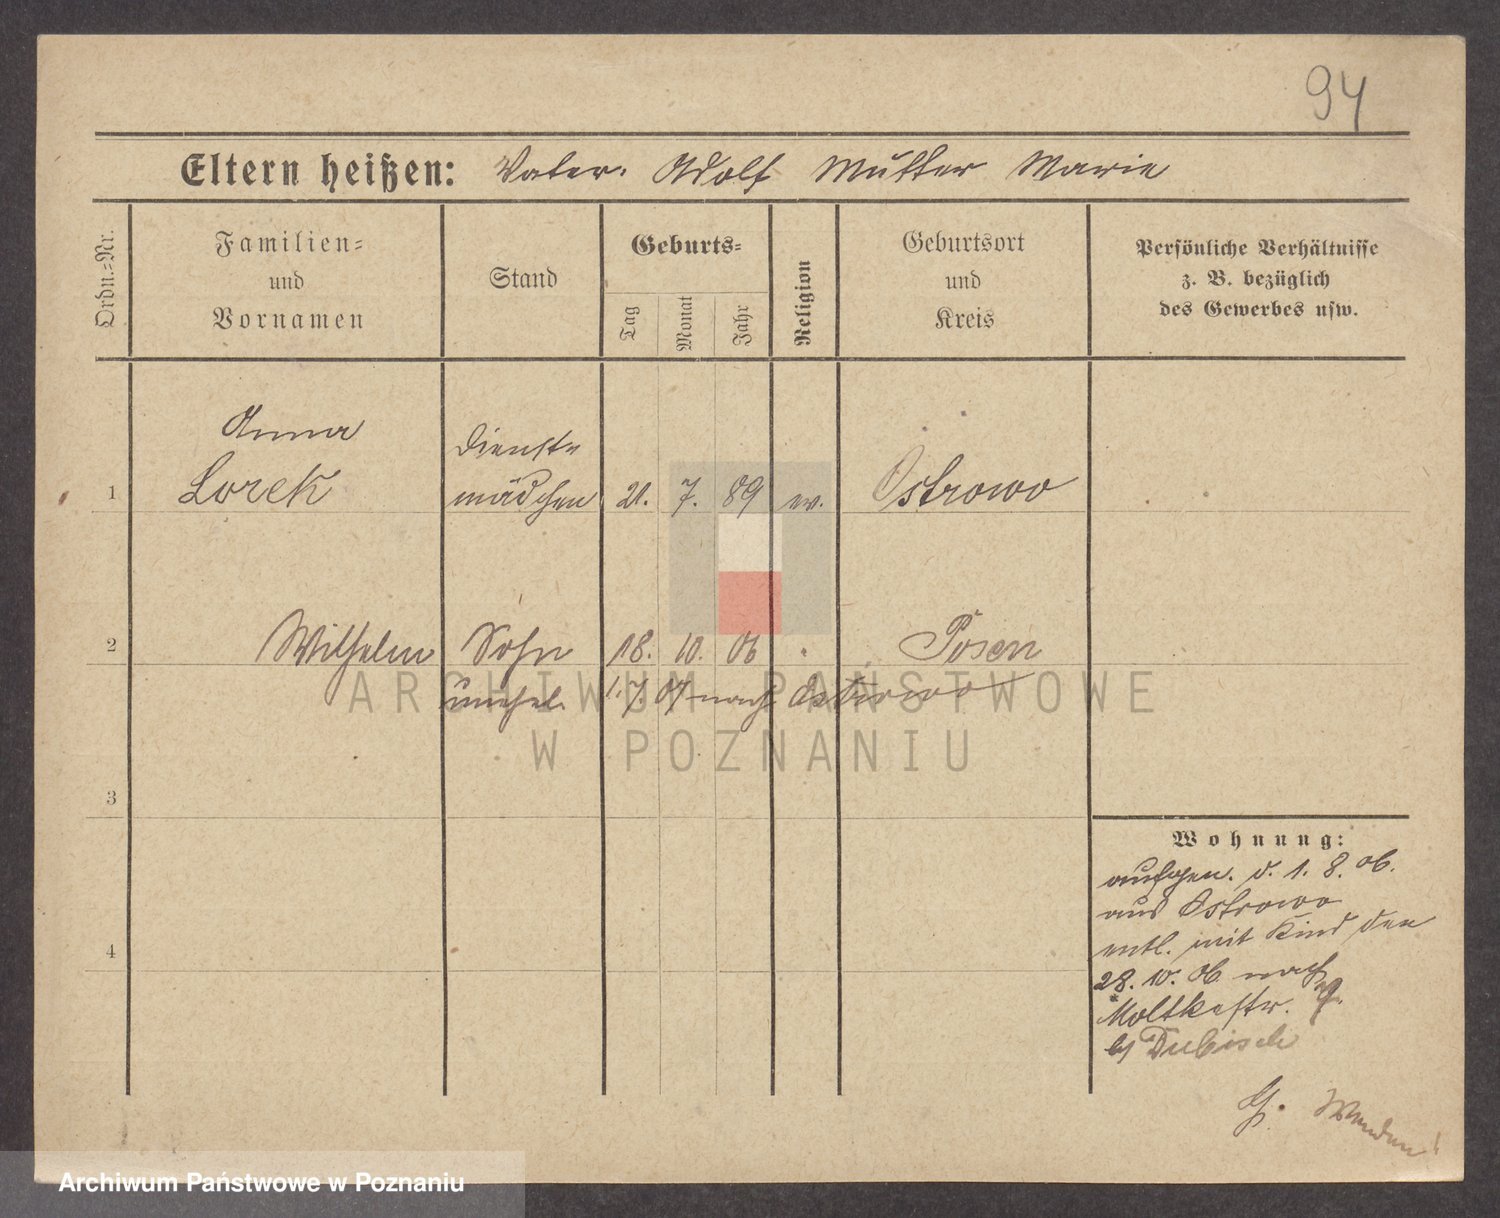 94
Eltern heißen: Vater. Adolf Mutter Marie
Ordn.-Nr.
Familien-
und
Vornamen
Stand
Geburts-
Tag
Monat
Jahr
Religion
Geburtsort
und
Kreis
Persönliche Verhältnisse
z. B. bezüglich
des Gewerbes usw.
Anna
Dienst-
1 Lorek mädchen 21. 7. 89 ev. Ostrowo
2 Wilhelm Sohn 18. 10. 06 Posen
unehel. 1. 7. 07 nach Ostrowo
3
4
Wohnung:
aufgen. d. 1. 8. 06.
aus Ostrowo
entl. mit Kind den
28. 10. 06 nach
Moltkestr.
b/ Dubisch
ARCHIWUM PAŃSTWOWE
W POZNANIU
Archiwum Państwowe w Poznaniu